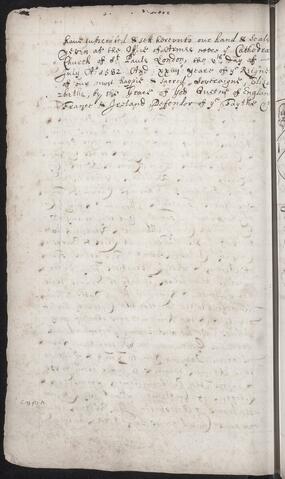 have subscribed & sett hereunto our hand & Seale
Given at the Office of Armes neere yͤ Cathedral
Church of Sͭ Pauls London, the
July Aͦ 1582. And xxiiij yeare of yͤ Reigne
of our most happie & sacred Soveraigne Eliz
abethe, by the Grace of God Queene of Englan
France & Ireland Defendor of yͤ Faythe &